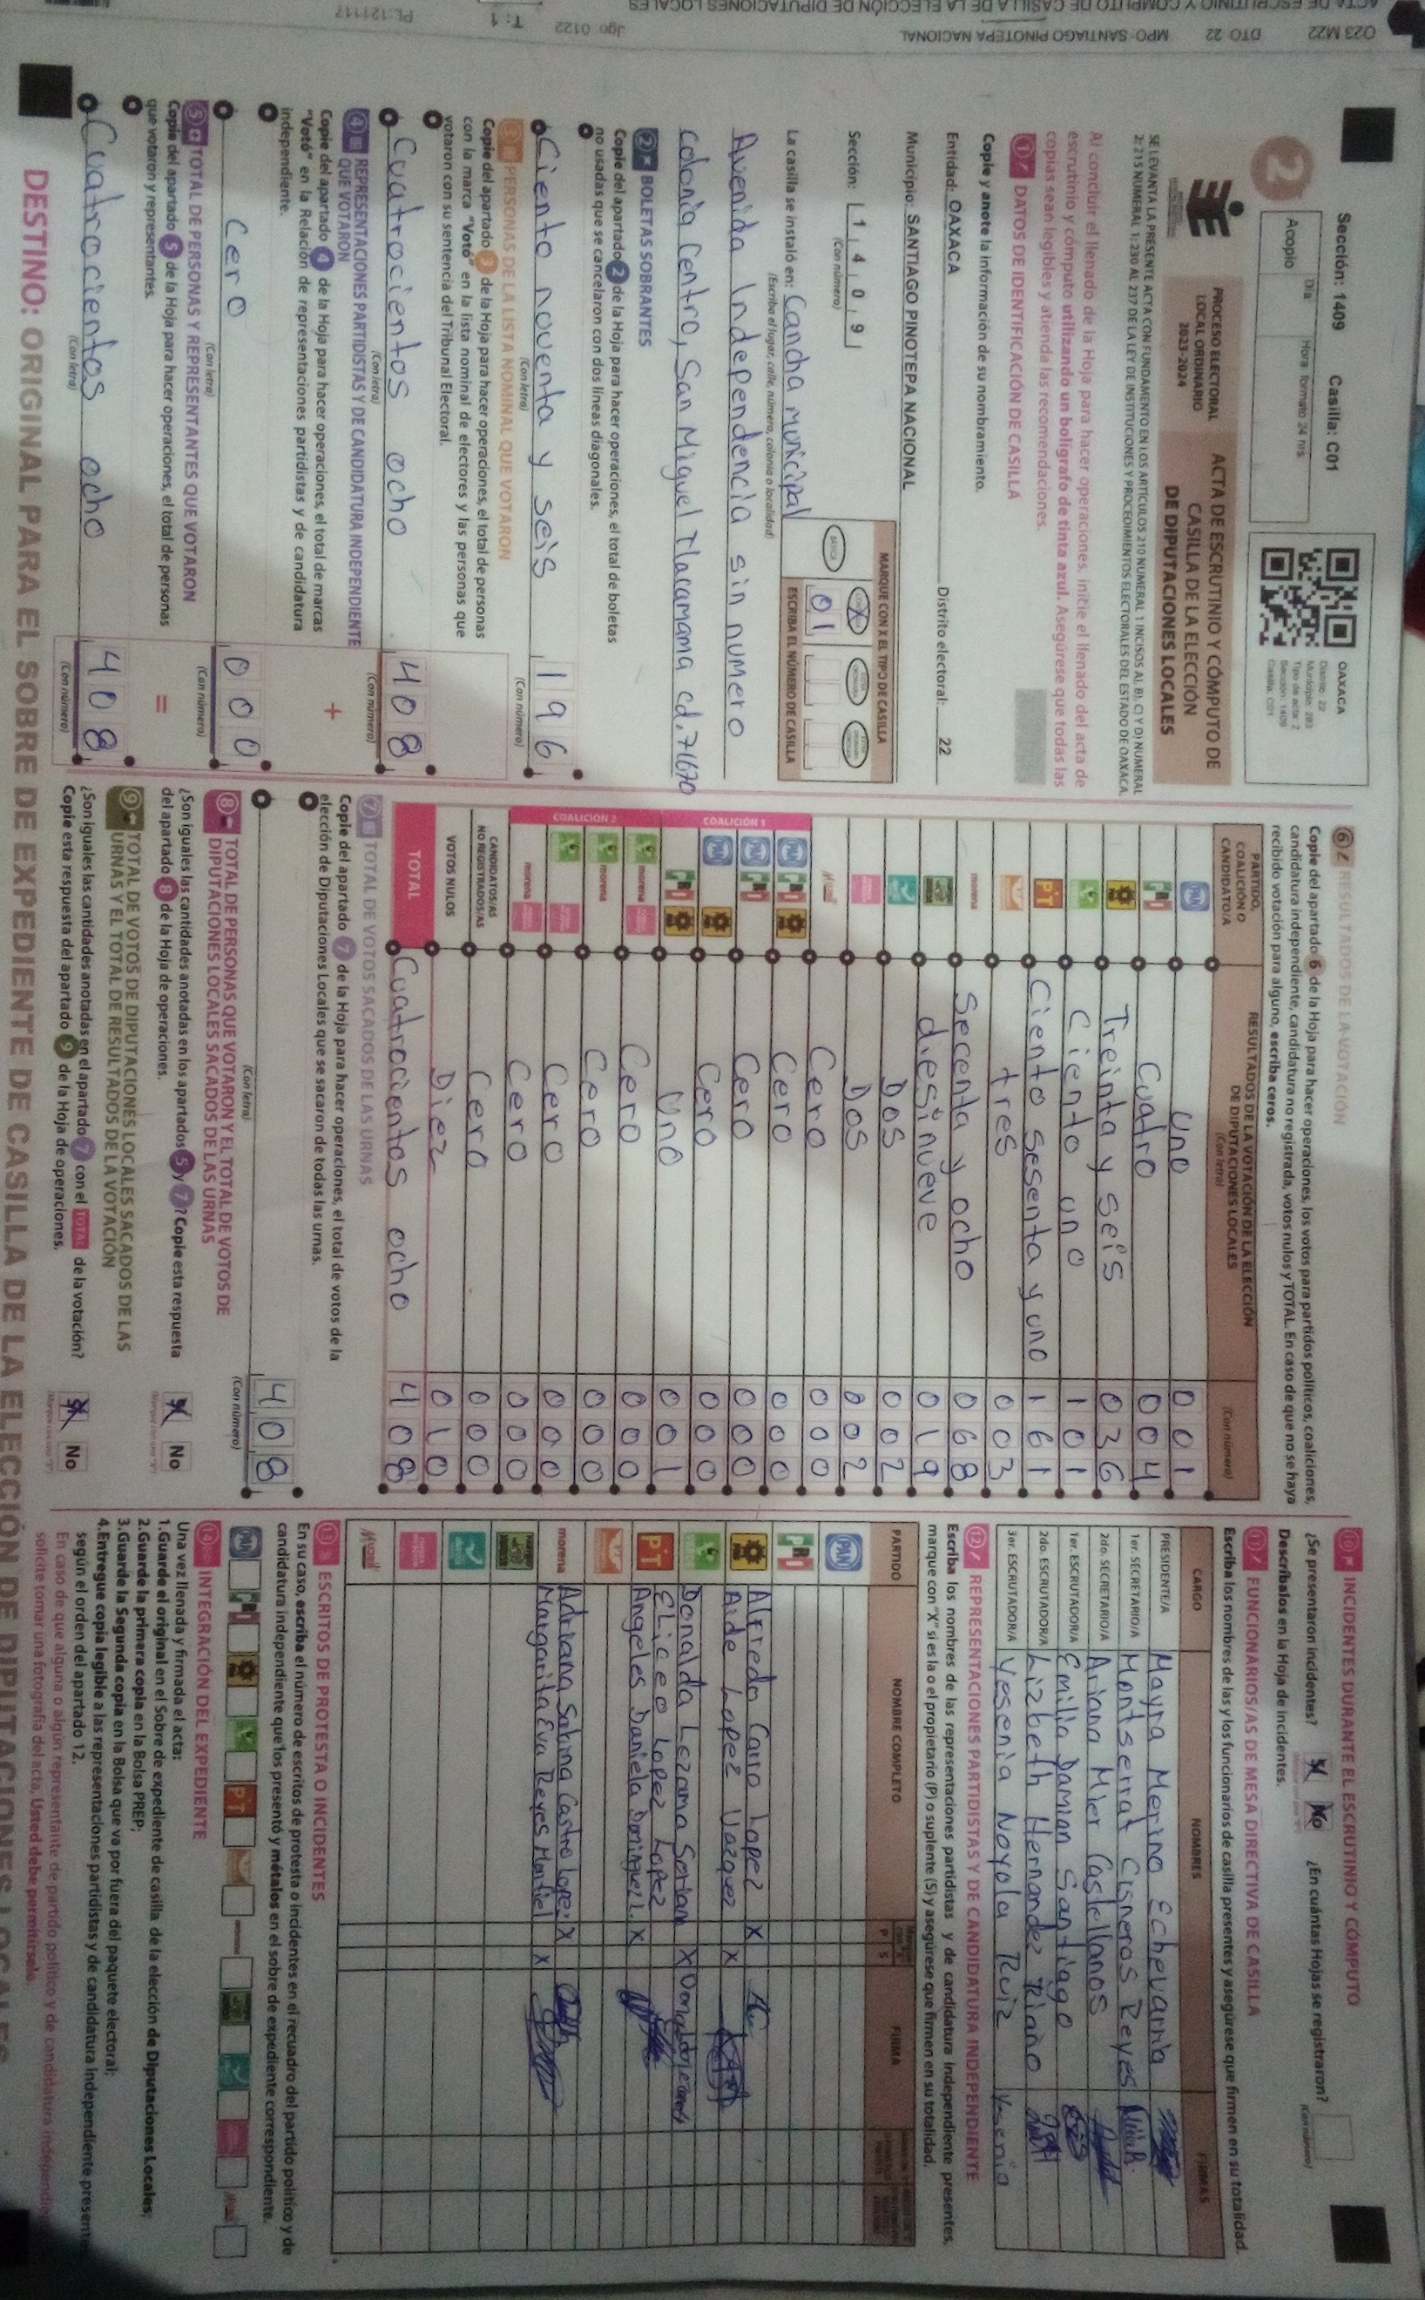 Sección: 1409 Casilla: C01
2
Acopio
Día:
Hora: formato 24 hrs.
OAXACA
Distrito: 22
Municipio: 283
Tipo de acta: 2
Sección: 1409
Casilla: C01
PROCESO ELECTORAL
LOCAL ORDINARIO
2023-2024
ACTA DE ESCRUTINIO Y CÓMPUTO DE
CASILLA DE LA ELECCIÓN
DE DIPUTACIONES LOCALES
SE LEVANTA LA PRESENTE ACTA CON FUNDAMENTO EN LOS ARTÍCULOS 210 NUMERAL 1 INCISOS A), B), C) Y D) NUMERAL
2; 215 NUMERAL 1; 230 AL 237 DE LA LEY DE INSTITUCIONES Y PROCEDIMIENTOS ELECTORALES DEL ESTADO DE OAXACA.
Al concluir el llenado de la Hoja para hacer operaciones, inicie el llenado del acta de
escrutinio y cómputo utilizando un bolígrafo de tinta azul. Asegúrese que todas las
copias sean legibles y atienda las recomendaciones.
1 DATOS DE IDENTIFICACIÓN DE CASILLA
Copie y anote la información de su nombramiento.
Entidad: OAXACA Distrito electoral: 22
Municipio: SANTIAGO PINOTEPA NACIONAL
Sección: 1 4 0 9
(Con número)
MARQUE CON X EL TIPO DE CASILLA
BÁSICA
X
01
ESCRIBA EL NÚMERO DE CASILLA
La casilla se instaló en: Cancha municipal
(Escriba el lugar, calle, número, colonia o localidad)
Avenida Independencia sin numero
Colonia Centro, San Miguel Tlacamama cd. 71670
2 BOLETAS SOBRANTES
Copie del apartado 2 de la Hoja para hacer operaciones, el total de boletas
no usadas que se cancelaron con dos líneas diagonales.
Ciento noventa y seis 196
(Con letra) (Con número)
3 PERSONAS DE LA LISTA NOMINAL QUE VOTARON
Copie del apartado 3 de la Hoja para hacer operaciones, el total de personas
con la marca "Votó" en la lista nominal de electores y las personas que
votaron con su sentencia del Tribunal Electoral.
Cuatrocientos ocho 408
(Con letra) (Con número)
4 REPRESENTACIONES PARTIDISTAS Y DE CANDIDATURA INDEPENDIENTE
QUE VOTARON
Copie del apartado 4 de la Hoja para hacer operaciones, el total de marcas
"Votó" en la Relación de representaciones partidistas y de candidatura
independiente.
+
Cero 000
(Con letra) (Con número)
5 TOTAL DE PERSONAS Y REPRESENTANTES QUE VOTARON
Copie del apartado 5 de la Hoja para hacer operaciones, el total de personas
que votaron y representantes.
=
Cuatrocientos ocho 408
(Con letra) (Con número)
6 RESULTADOS DE LA VOTACIÓN
Copie del apartado 6 de la Hoja para hacer operaciones, los votos para partidos políticos, coaliciones,
candidatura independiente, candidatura no registrada, votos nulos y TOTAL. En caso de que no se haya
recibido votación para alguno, escriba ceros.
PARTIDO,
COALICIÓN O
CANDIDATO/A
RESULTADOS DE LA VOTACIÓN DE LA ELECCIÓN
DE DIPUTACIONES LOCALES
(Con letra)
(Con número)
PAN Uno 001
PRI Cuatro 004
Treinta y seis 036
Ciento uno 101
PT Ciento sesenta y uno 161
tres 003
morena Secenta y ocho 068
diesinueve 019
Dos 002
Dos 002
Cero 000
COALICIÓN 1
PAN PRI Cero 000
PAN PRI Cero 000
PAN Cero 000
PRI Uno 001
COALICIÓN 2
morena Cero 000
morena Cero 000
Cero 000
morena Cero 000
CANDIDATOS/AS
NO REGISTRADOS/AS Cero 000
VOTOS NULOS Diez 010
TOTAL Cuatrocientos ocho 408
7 TOTAL DE VOTOS SACADOS DE LAS URNAS
Copie del apartado 7 de la Hoja para hacer operaciones, el total de votos de la
elección de Diputaciones Locales que se sacaron de todas las urnas.
408
(Con letra) (Con número)
8 TOTAL DE PERSONAS QUE VOTARON Y EL TOTAL DE VOTOS DE
DIPUTACIONES LOCALES SACADOS DE LAS URNAS
¿Son iguales las cantidades anotadas en los apartados 5 y 7? Copie esta respuesta
del apartado 8 de la Hoja de operaciones.
Sí No
9 TOTAL DE VOTOS DE DIPUTACIONES LOCALES SACADOS DE LAS
URNAS Y EL TOTAL DE RESULTADOS DE LA VOTACIÓN
¿Son iguales las cantidades anotadas en el apartado 7 con el TOTAL de la votación?
Copie esta respuesta del apartado 9 de la Hoja de operaciones.
Sí No
10 INCIDENTES DURANTE EL ESCRUTINIO Y CÓMPUTO
¿Se presentaron incidentes? Sí No ¿En cuántas Hojas se registraron?
(Con número)
Descríbalos en la Hoja de incidentes.
11 FUNCIONARIOS/AS DE MESA DIRECTIVA DE CASILLA
Escriba los nombres de las y los funcionarios de casilla presentes y asegúrese que firmen en su totalidad.
CARGO NOMBRES FIRMAS
PRESIDENTE/A Mayra Merino Echevarria
1er. SECRETARIO/A Montserrat Cisneros Reyes
2do. SECRETARIO/A Ariana Mier Castellanos
1er. ESCRUTADOR/A Emilia Damian Santiago
2do. ESCRUTADOR/A Lizbeth Hernandez
3er. ESCRUTADOR/A Yessenia Noyola Ruiz Yessenia
12 REPRESENTACIONES PARTIDISTAS Y DE CANDIDATURA INDEPENDIENTE
Escriba los nombres de las representaciones partidistas y de candidatura independiente presentes,
marque con "X" si es la o el propietario (P) o suplente (S) y asegúrese que firmen en su totalidad.
PARTIDO NOMBRE COMPLETO P S FIRMA
PAN
PRI
Alfredo Cano Lopez X
Aide Lopez Vazquez X
Donalda Lezama Serian X
PT Eliceo Lopez Lopez
Angeles Daniela Dominguez L. X
morena Adriana Sabina Castro Lopez X
Margarita Eva Reyes Montiel X
13 ESCRITOS DE PROTESTA O INCIDENTES
En su caso, escriba el número de escritos de protesta o incidentes en el recuadro del partido político y de
candidatura independiente que los presentó y métalos en el sobre de expediente correspondiente.
PAN PRI PT
14 INTEGRACIÓN DEL EXPEDIENTE
Una vez llenada y firmada el acta:
1.Guarde el original en el Sobre de expediente de casilla de la elección de Diputaciones Locales;
2.Guarde la primera copia en la Bolsa PREP;
3.Guarde la Segunda copia en la Bolsa que va por fuera del paquete electoral;
4.Entregue copia legible a las representaciones partidistas y de candidatura independiente
según el orden del apartado 12.
En caso de que alguna o algún representante de partido político y de candidatura
solicite tomar una fotografía del acta, Usted debe permitírselo.
DESTINO: ORIGINAL PARA EL SOBRE DE EXPEDIENTE DE CASILLA DE LA ELECCIÓN DE DIPUTACIONES LOCALES
O23 M22 DTO 22 MPO- SANTIAGO PINOTEPA NACIONAL
ACTA DE ESCRUTINIO Y COMPUTO DE CASILLA DE LA ELECCIÓN DE DIPUTACIONES LOCALES
Jgo 0122 T: 1